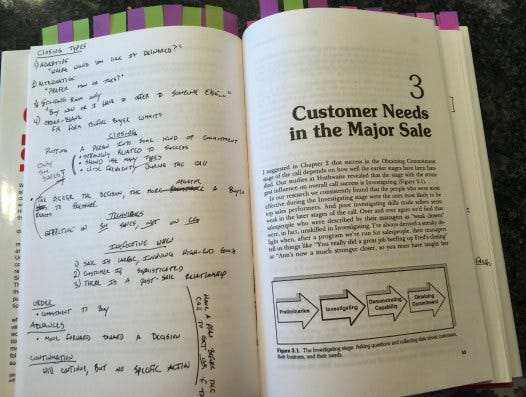 CLOSING TYPES
1) ASSUMPTIVE
"WHERE WOULD YOU LIKE IT DELIVERED?"
2) ALTERNATIVE
"PREFER NOW OR THEN?"
3) STANDING ROOM ONLY
"BUY NOW OR I HAVE TO OFFER TO SOMEONE ELSE..."
4) ORDER-BLANK
FILL FORM BEFORE BUYER COMMITS
CLOSING
PUTTING A PERSON INTO SOME KIND OF COMMITMENT
• STRONGLY RELATED TO SUCCESS
• SHOULD USE MANY TYPES
• USE FREQUENTLY DURING THE CALL
ONLY
SM
SALES!
THE BIGGER THE DECISION, THE MORE NEGATIVE A BUYER
TO PRESSURE
TECHNIQUES
EFFECTIVE ON SM SALES, NOT ON LG
INEFFECTIVE WHEN
1) SALE IS LARGE, INVOLVING HIGH-END GOODS
2) CUSTOMER IS SOPHISTICATED
3) THERE IS A POST-SALE RELATIONSHIP
ORDER
• COMMITMENT TO BUY
ADVANCES
• MOVE FORWARD TOWARD A DECISION
CONTINUATION
WILL CONTINUE, BUT NO SPECIFIC ACTION
HAVE A PLAN BEFORE THE
CALL TO GET ONE IF
3
Customer Needs
in the Major Sale
I suggested in Chapter 2 that success in the Obtaining Commitment
stage of the call depends on how well the earlier stages have been han-
dled. Our studies at Huthwaite revealed that the stage with the strong-
est influence on overall call success is Investigating (Figure 3.1).
In our research we consistently found that the people who were most
effective during the Investigating stage were the ones most likely to be
top sales performers. And poor investigating skills made sellers seem
weak in the later stages of the call. Over and over again we'd find that
salespeople who were described by their managers as "weak closers"
were, in fact, unskilled in Investigating. I've always derived a sneaky de-
light when, after a program we've run for salespeople, their managers
tell us things like "You really did a great job beefing up Fred's closing"
or "Ann's now a much stronger closer, so you must have taught her
Preliminaries
Investigating
Demonstrating
Capability
Obtaining
Commitment
Figure 3.1. The Investigating stage: Asking questions and collecting data about customers,
their business, and their needs.